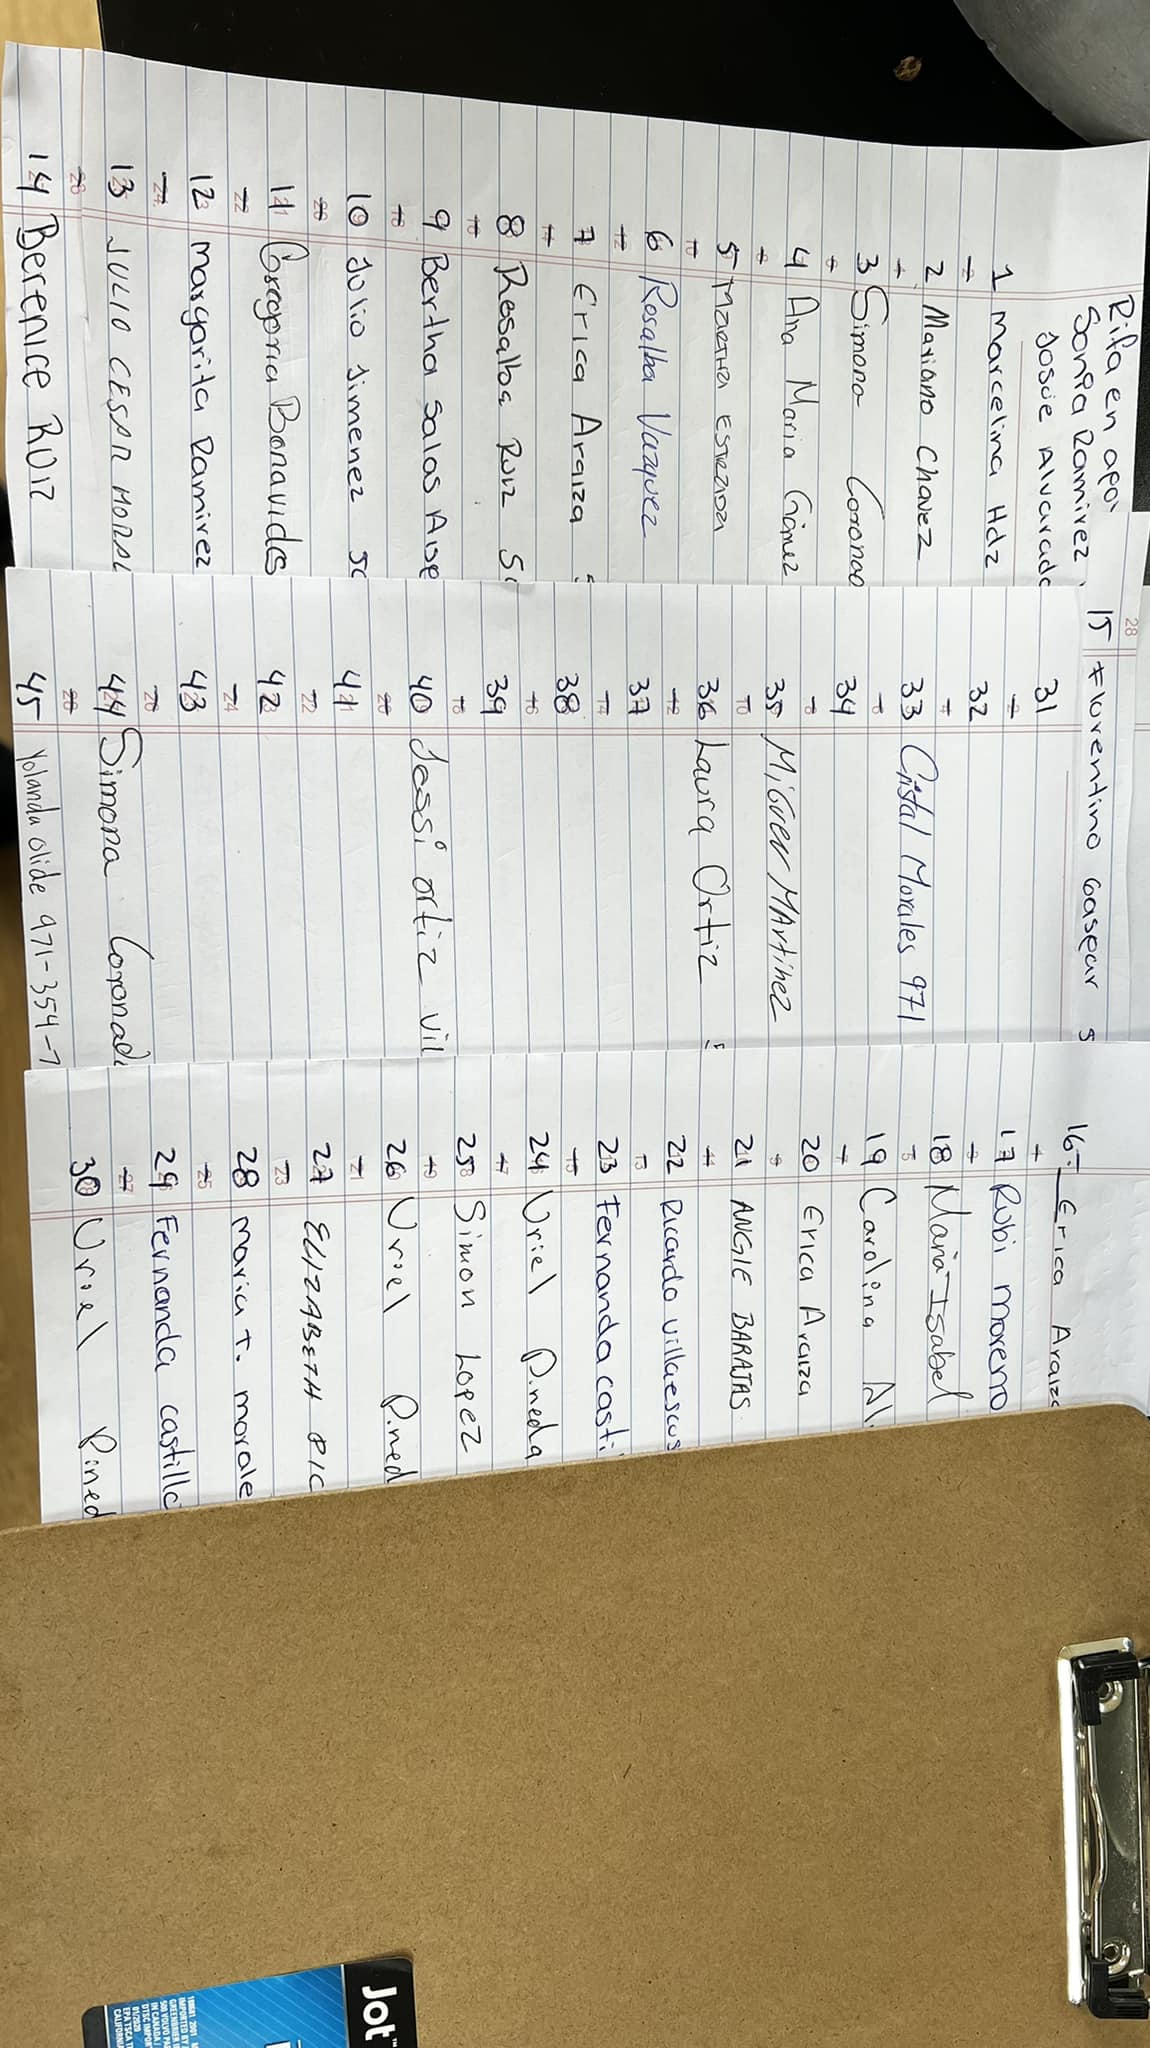 Rifa en apo
Sonia Ramirez
Josue Alvarado
1 Marcelina Hdz
2 Mariano Chavez
3 Simona Coronao
4 Ana Maria Gamez
5 MARTHA ESTRADA
6 Rosalba Vazquez
7 Erica Araiza
8 Rosalba Ruiz
9 Bertha Salas
10 Julio Jimenez
11 Gregoria Benavides
12 Margarita Ramirez
13 JULIO CESAR MORAL
14 Berenice Ruiz
15 Florentino Gaspar
31
32
33 Cristal Morales 971
34
35 Miguel Martinez
36 Laura Ortiz
37
38
39
40 Jessi Ortiz Vil
41
42
43
44 Simona Coronad
45 Yolanda Olide 971-354-7
16- Erica Araiza
17 Rubi moreno
18 Maria Isabel
19 Carolina Al
20 Erica Araiza
21 ANGIE BARAJAS
22 Ricardo Villaescus
23 Fernanda casti
24 Uriel Pineda
25 Simon Lopez
26 Uriel Pined
27 ELIZABETH
28 maria t. morale
29 Fernanda castillo
30 Uriel Pined
Jot